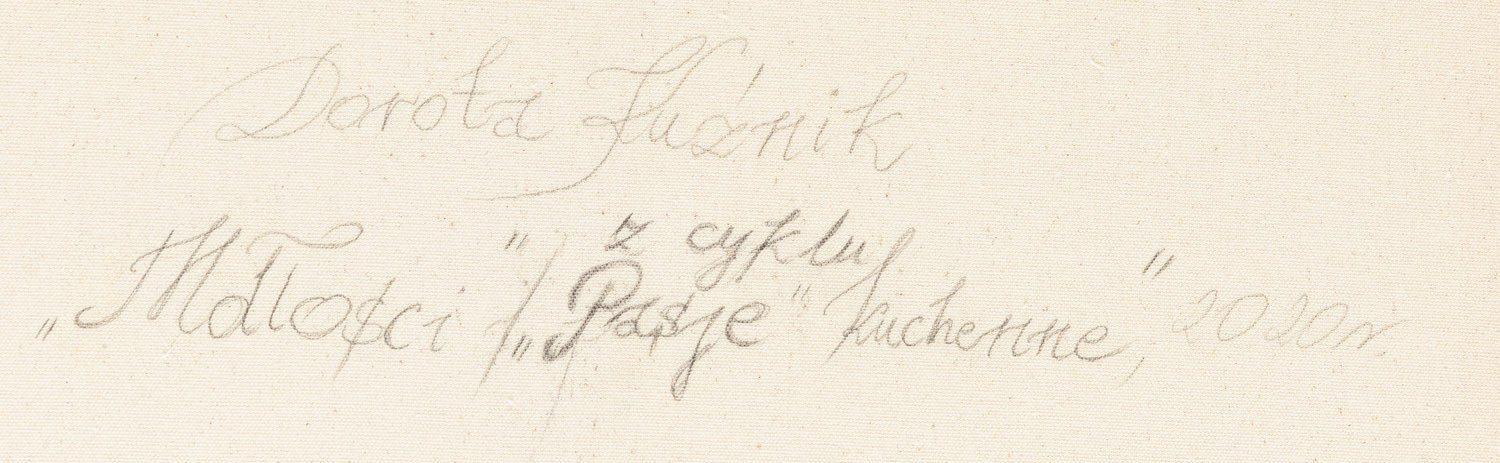 Dorota Kuźnik
„Mdłości" z cyklu
„Pasje" kuchenne", 2020 r.